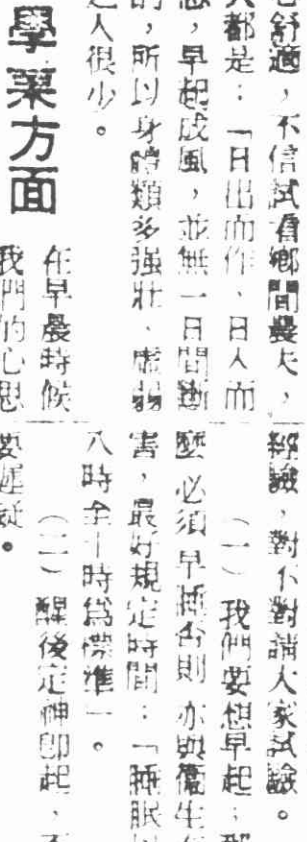 舒適，不信試看鄉間農夫，
人都是：「日出而作、日入而
息，早起成風，並無一日間斷
的，所以身體類多强壯、虛弱
之人很少。
學業方面
在早晨時候
我們的心思
經驗，對不對請大家試驗。
（一）我們要想早起；那
麼必須早睡否則亦與衞生有
害，最好規定時間：「睡眠以
八時至十時爲標準」。
（二）醒後定神卽起，不
要遲疑。